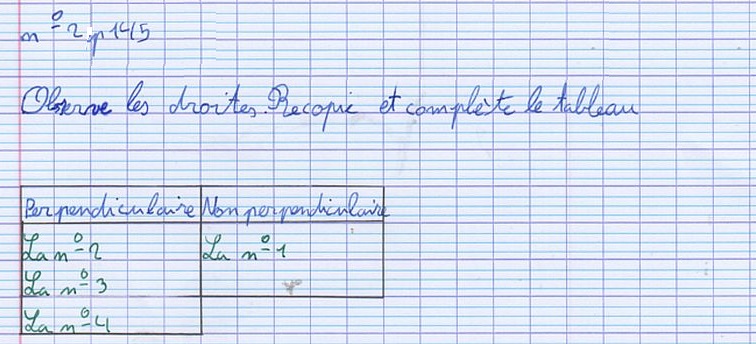 n° 2 p 145
Observe les droites. Recopie et complète le tableau
Perpendiculaire Non perpendiculaire
La n° 2 La n° 1
La n° 3
La n° 4